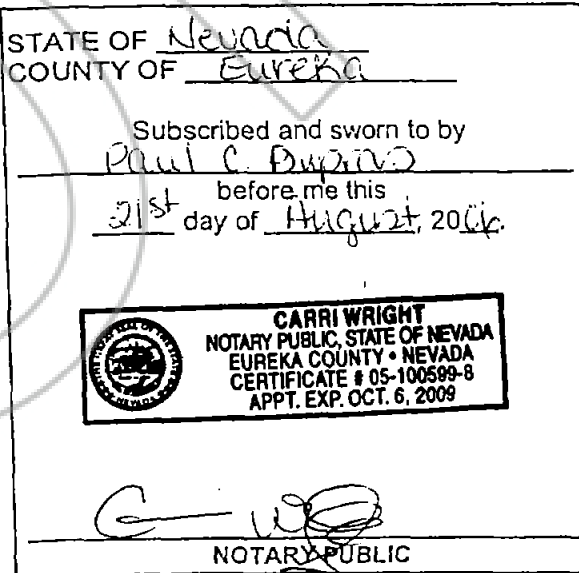 STATE OF Nevada
COUNTY OF Eureka
Subscribed and sworn to by
Paul C.
before me this
21st day of August, 20
CARRI WRIGHT
NOTARY PUBLIC, STATE OF NEVADA
EUREKA COUNTY • NEVADA
CERTIFICATE # 05-100599-8
APPT. EXP. OCT. 6, 2009
NOTARY PUBLIC